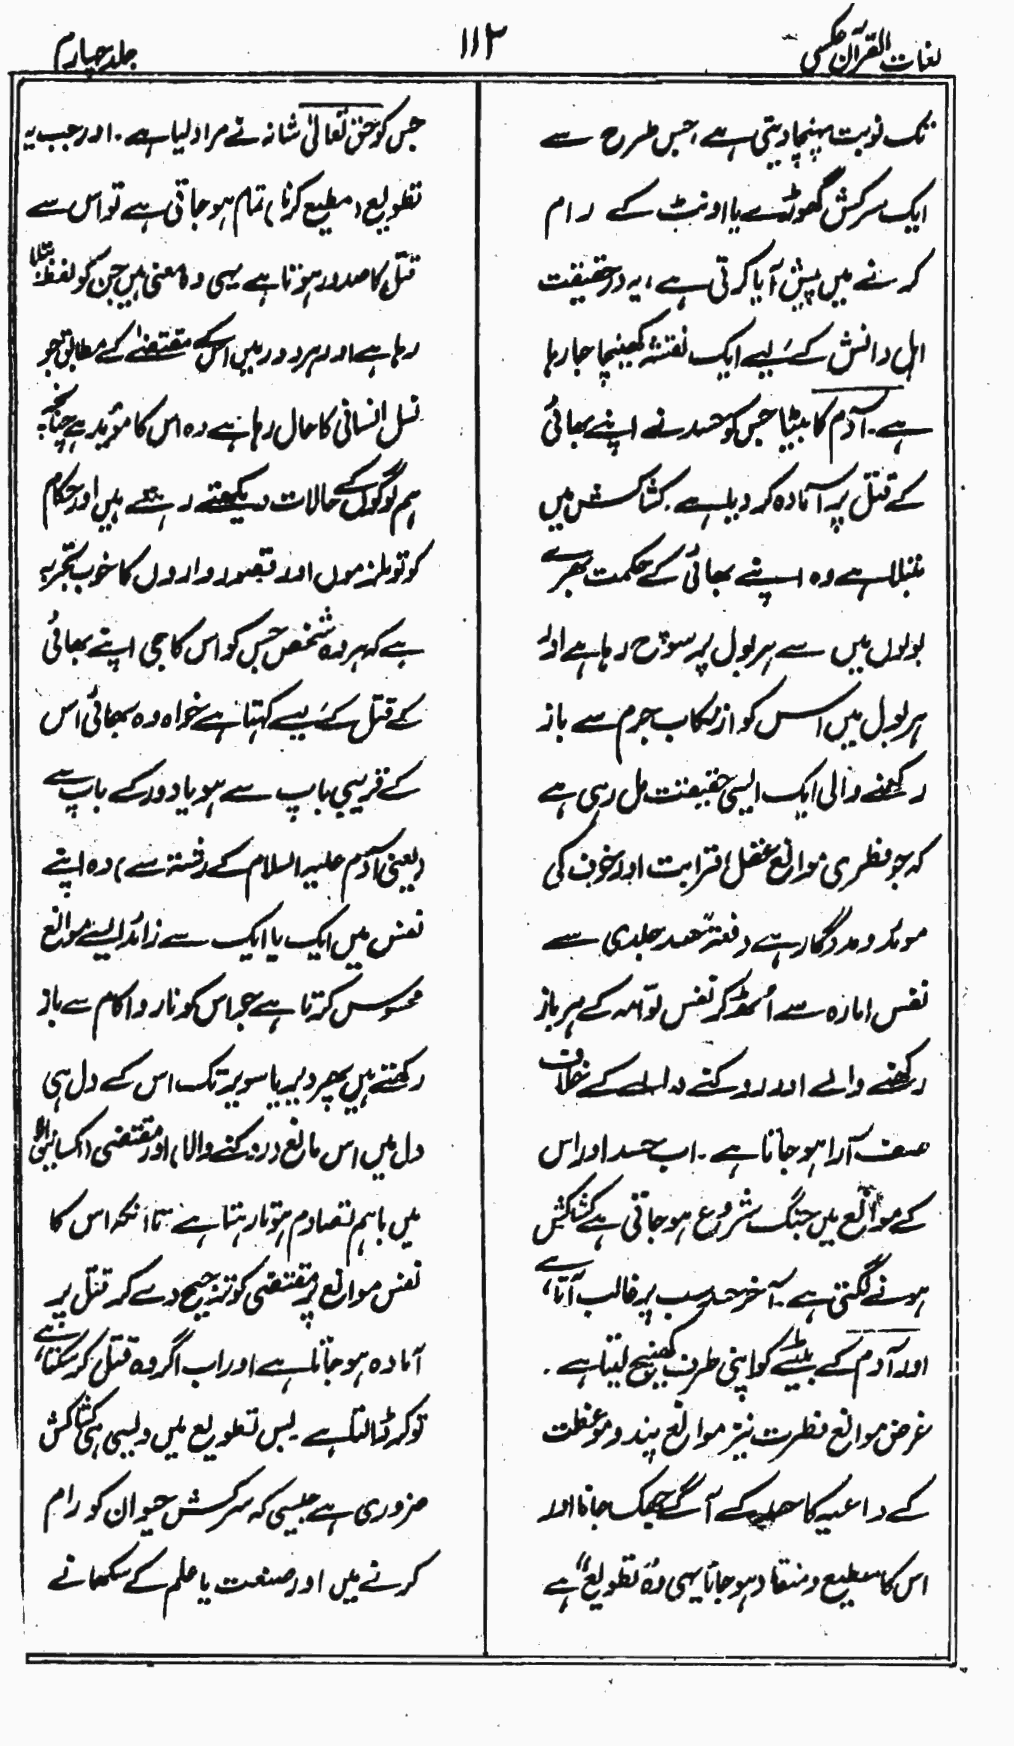 لغات القرآن عکسی
۱۱۲
جلد چہارم
تک نوبت پہنچا دیتی ہے، جس طرح سے
ایک سرکش گھوڑے یا اونٹ کے رام
کرنے میں پیش آیا کرتی ہے، یہ درحقیقت
اہل دانش کے لیے ایک نقشہ کھینچا جا رہا
ہے۔ آدم کا بیٹا جس کو حسد نے اپنے بھائی
کے قتل پر آمادہ کر دیا ہے۔ کشاکش میں
مبتلا ہے وہ اپنے بھائی کے حکمت بھرے
بولوں میں سے ہر بول پر سوچ رہا ہے اور
ہر بول میں اس کو ارتکاب جرم سے باز
رکھنے والی ایک ایسی حقیقت مل رہی ہے
کہ جو فطری موانع عقل قرابت اور خوف کی
موید و مددگار ہے دفعۃً حسد جلدی سے
نفس امارہ سے اُمڈ کر نفس لوّامہ کے ہر باز
رکھنے والے اور روکنے والے کے خلاف
صف آرا ہو جاتا ہے۔ اب حسد اور اس
کے موانع میں جنگ شروع ہو جاتی ہے کشاکش
ہونے لگتی ہے۔ آخر حسد سب پر غالب آتا ہے،
اور آدم کے بیٹے کو اپنی طرف کھینچ لیتا ہے۔
غرض موانع فطرت نیز موانع پند و موعظت
کے داعیہ کا حسد کے آگے جھک جانا اور
اس کا مطیع و منقاد ہو جانا یہی وہ "تطویع" ہے
جس کو حق تعالیٰ شانہ نے مراد لیا ہے۔ اور جب یہ
تطویع (مطیع کرنا) تمام ہو جاتی ہے تو اس سے
قتل کا صدور ہوتا ہے یہی وہ معنی ہیں جن کو لفظ بتلا
رہا ہے اور ہر دور میں اس کے مقتضیٰ کے مطابق جو
نسل انسانی کا حال رہا ہے وہ اس کا مؤید ہے چنانچہ
ہم لوگوں کے حالات دیکھتے رہتے ہیں اور حکام
کو تو ملزموں اور قصور واروں کا خوب تجربہ
ہے کہ ہر وہ شخص جس کو اس کا جی اپنے بھائی
کے قتل کے لیے کہتا ہے خواہ وہ بھائی اس
کے قریبی باپ سے ہو یا دور کے باپ سے
(یعنی آدم علیہ السلام کے رشتہ سے) وہ اپنے
نفس میں ایک یا ایک سے زائد ایسے موانع
محسوس کرتا ہے جو اس کو ناروا کام سے باز
رکھتے ہیں پھر دیر یا سویر تک اس کے دل ہی
دل میں اس مانع (روکنے والا) اور مقتضی (اکسانے والا)
میں باہم تصادم ہوتا رہتا ہے تا آنکہ اس کا
نفس موانع پر مقتضی کو ترجیح دے کر قتل پر
آمادہ ہو جاتا ہے اور اب اگر وہ قتل کر سکتا ہے،
تو کر ڈالتا ہے پس تطویع میں ویسی ہی کشاکش
ضروری ہے جیسی کہ سرکش حیوان کو رام
کرنے میں اور صنعت یا علم کے سکھانے